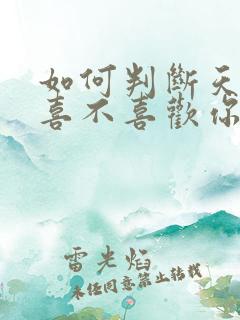 如何判斷天
喜不喜歡你
雷光焰
未經同意禁止轉載